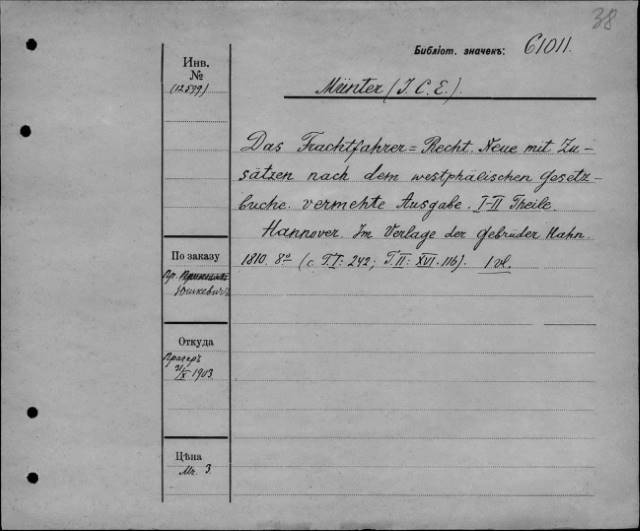 38
Библіот. значекъ: C1011.
Инв.
№
(12599)
Münter (J. C. E.).
Das Frachtfahrer = Recht. Neue mit Zu-
sätzen nach dem westphälischen Gesetz-
buche vermehte Ausgabe. I-II Theile.
Hannover. Im Verlage der Gebrüder Hahn.
1810. 8º (c. T I: 242; T II: XVI. 116). 1 vl.
По заказу
Юшкевичъ
Откуда
Прагеръ
X 1903
Цѣна
Mк. 3.